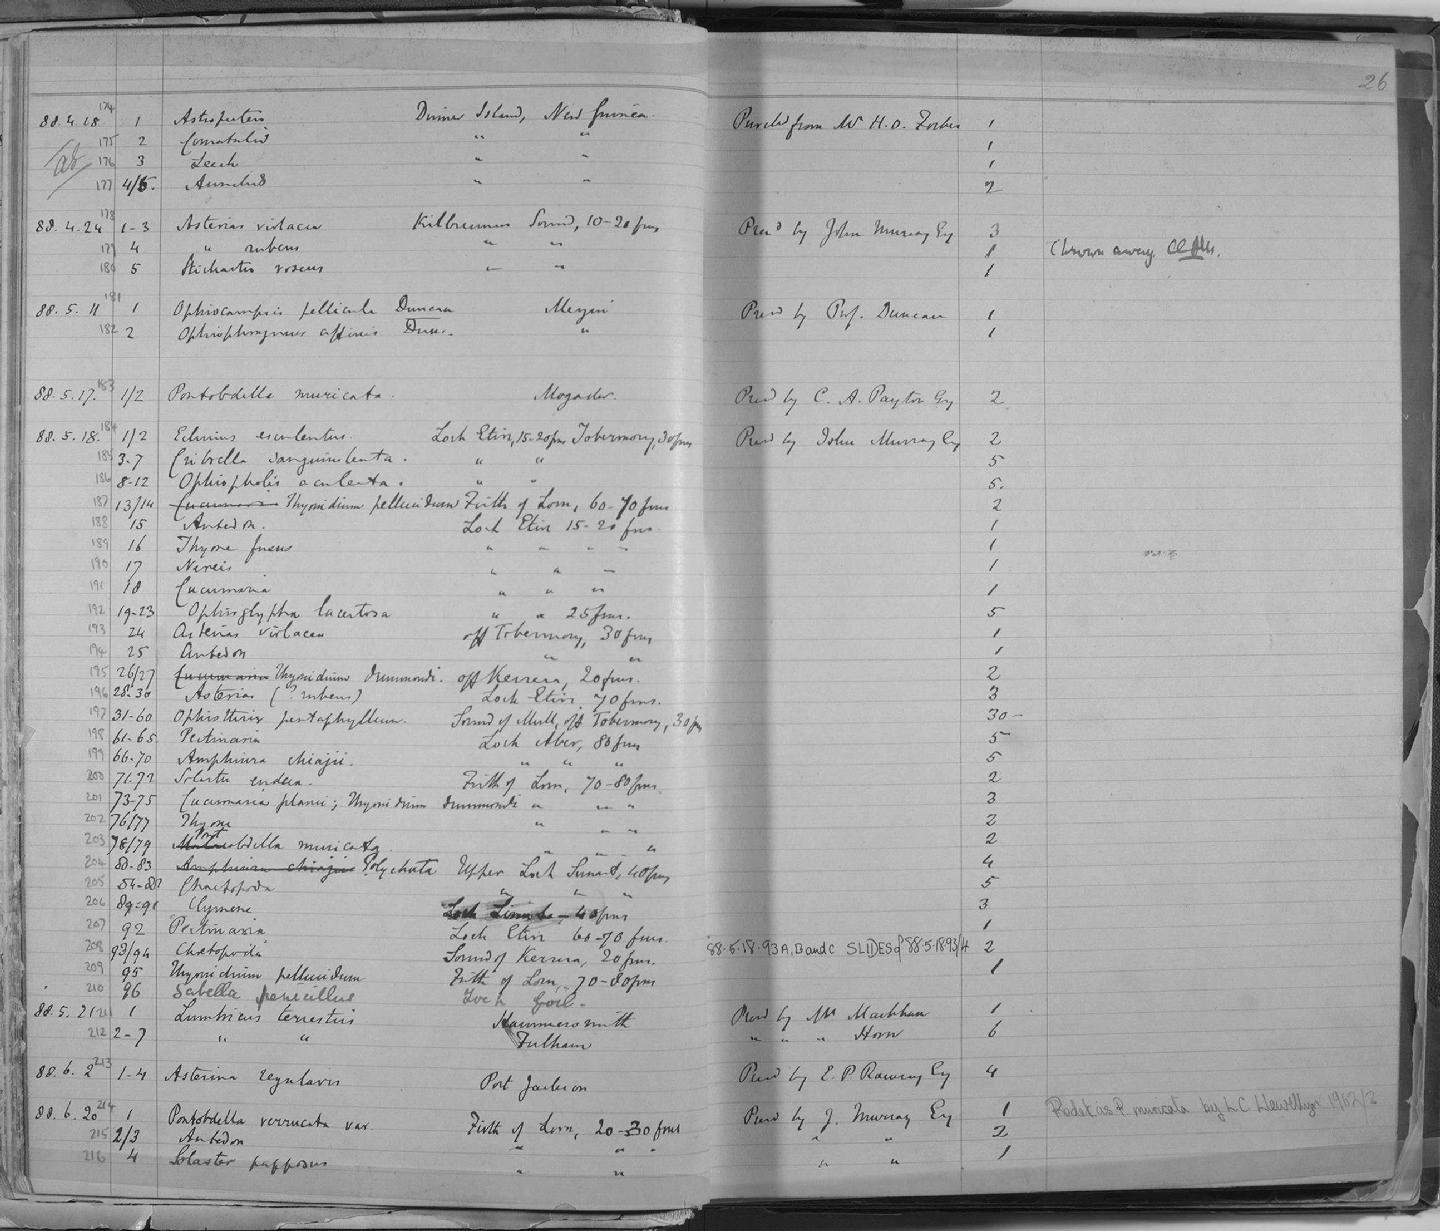 26
174
88.4.18 1 Astropecten Dinner Island, New Guinea. Purchd from Mr H. O. Forbes 1
175 2 Comatulid " " 1
176 3 Leech " " 1
177 4/5. Annelids " " 2
178
88.4.24 1-3 Asterias violacea Kilbrennan Sound, 10-20 fms Presd by John Murray Esq 3
179 4 " rubens " " 1 Thrown away.
180 5 Stichaster roseus " " 1
181
88.5.11 1 Ophiocampsis pellicula Duncan Mergui Presd by Prof. Duncan 1
182 2 Ophiophragmus affinis Dunc. " 1
183
88.5.17. 1/2 Pontobdella muricata. Mogador. Presd by C. A. Payton Esq 2
184
88.5.18. 1/2 Echinus esculentus. Loch Etive, 15-20 fms Tobermory, 30 fms Presd by John Murray Esq 2
185 3-7 Cribrella sanguinolenta. " " 5
186 8-12 Ophiopholis aculeata. " " 5.
187 13/14 Cucumaria Thyonidium pellucidum Firth of Lorn, 60-70 fms 2
188 15 Antedon. Loch Etive 15-20 fms. 1
189 16 Thyone fusus " " " " 1
190 17 Nereis " " " 1
191 18 Cucumaria " " " 1
192 19-23 Ophioglypha lacertosa " " 25 fms. 5
193 24 Asterias violacea off Tobermory, 30 fms 1
194 25 Antedon " " 1
195 26/27 Cucumaria Thyonidium drummondi. off Kerrera, 20 fms. 2
196 28-30 Asterias (? rubens) Loch Etive 70 fms. 3
197 31-60 Ophiothrix pentaphyllum. Sound of Mull, off Tobermory, 30 fms 30-
198 61-65 Pectinaria Loch Aber, 80 fms 5
199 66-70 Amphiura chiajii. " " " 5
200 71.72 Solaster endeca. Firth of Lorn, 70-80 fms. 2
201 73-75 Cucumaria planci; Thyonidium drummondi " " " 3
202 76/77 Thyone " " " 2
203 78/79 Pontobdella muricata. " " " 2
204 80-83 Amphiura chiajii Polychata Upper Loch Sunart, 40 fms 4
205 84-88 Chaetopoda " " " 5
206 89-91 Clymene Loch Linnhe - 40 fms 3
207 92 Pectinaria Loch Etive 60-70 fms. 1
208 93/94 Chaetopoda Sound of Kerrera, 20 fms. 88.5.18.93A, B and C SLIDES of 88.5.1893/4 2
209 95 Thyonidium pellucidum Firth of Lorn, 70-80 fms 1
210 96 Sabella penicillus Loch Goil.
88.5.21 211 1 Lumbricus terrestris Hammersmith Presd by Mr 1
212 2-7 " " Fulham " " " Horn 6
213
88.6.2 1-4 Asterina regularis Port Jackson Presd by E. P. Ramsay Esq 4
214
88.6.20 1 Pontobdella verrucata var. Firth of Lorn, 20-30 fms Presd by J. Murray Esq 1 Redet. as P. muricata by L.C. Llewellyn 1962/3
215 2/3 Antedon " " " " " 2
216 4 Solaster papposus " " " " 1